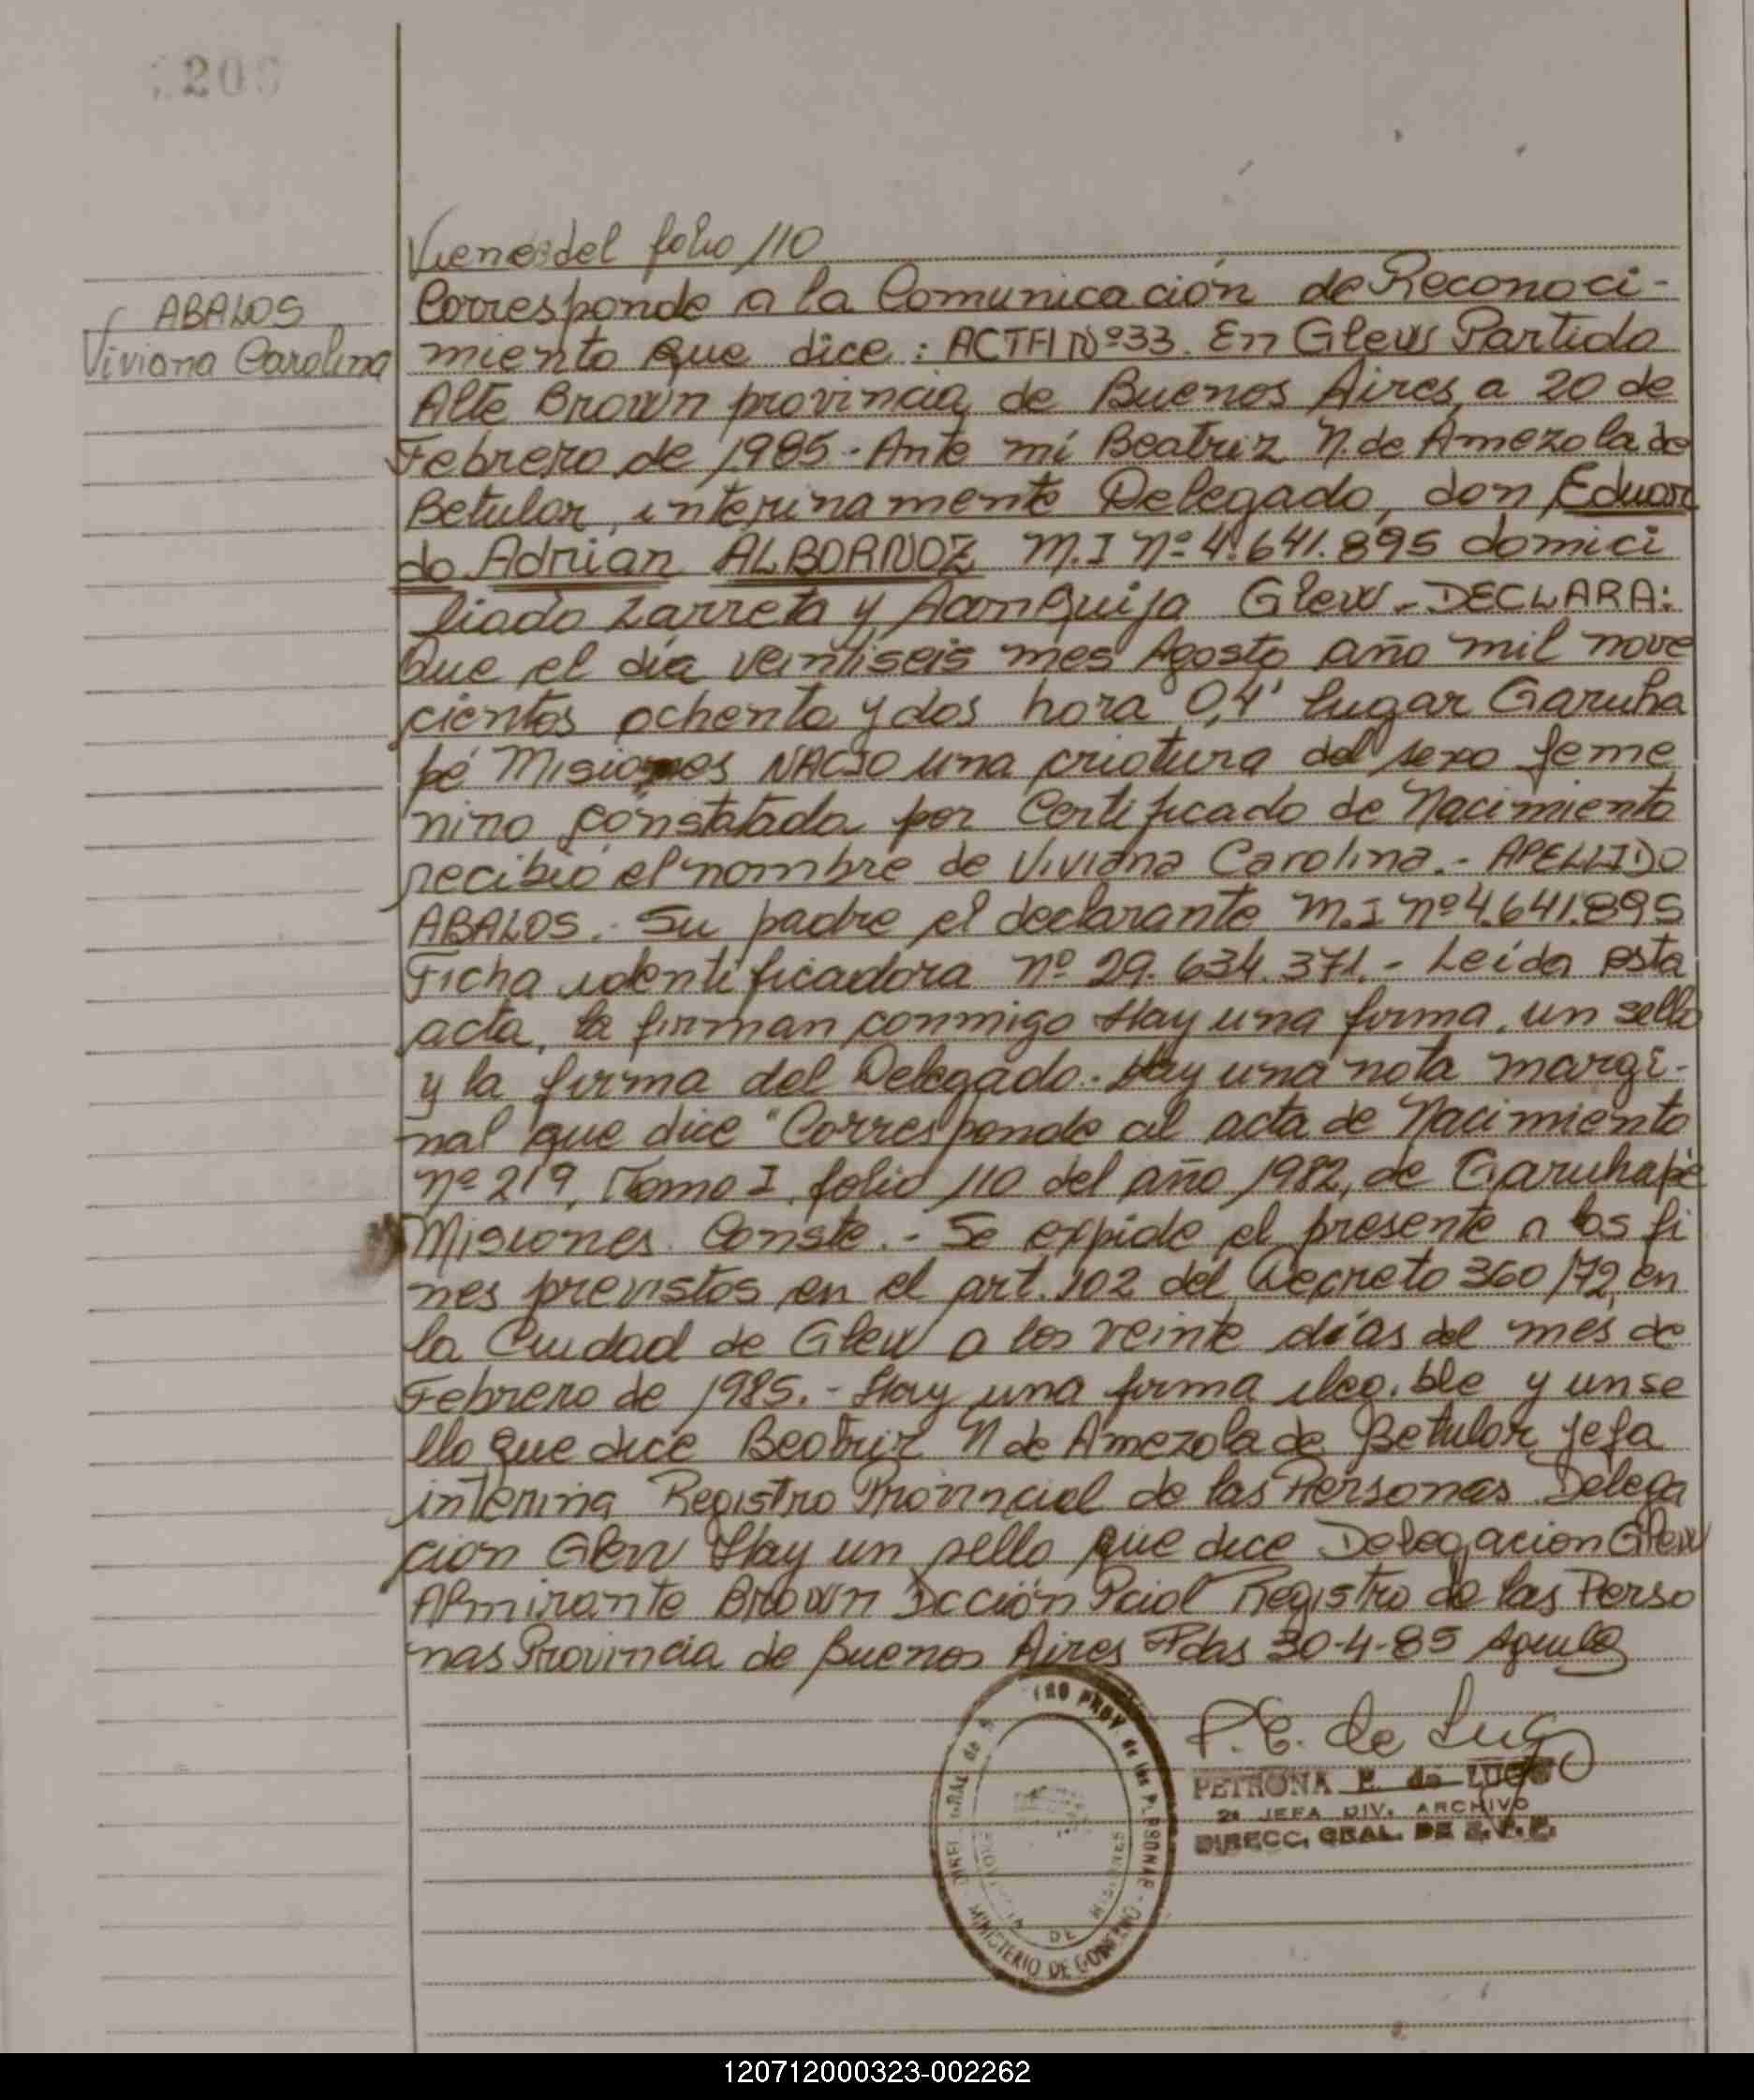 206
Viene del folio 110
ABALOS
Viviana Carolina
Corresponde a la Comunicación de Reconoci-
miento que dice: ACTA Nº 33. En Glew Partido
Alte Brown provincia de Buenos Aires, a 20 de
Febrero de 1985.- Ante mí Beatriz N. de Amezola de
Betular, interinamente Delegado, don Eduar
do Adrian ALBORNOZ M.I nº 4.641.895 domici
liado Larreta y Aconquija Glew.- DECLARA:
Que el día veintiseis mes Agosto año mil nove
cientos ochenta y dos hora 0,4' lugar Garuha
pé Misiones NACIO una criatura del sexo feme
nino constatada por Certificado de Nacimiento
recibió el nombre de Viviana Carolina.- APELLIDO
ABALOS.- Su padre el declarante M.I nº 4.641.895
Ficha identificadora nº 29.634.371.- Leída esta
acta, la firman conmigo Hay una firma, un sello
y la firma del Delegado. Hay una nota margi-
nal que dice "Corresponde al acta de Nacimiento
nº 219, Tomo I, folio 110 del año 1982, de Garuhapé
Misiones. Conste.- Se expide el presente a los fi
nes previstos en el art. 102 del Decreto 360/72, en
la Ciudad de Glew a los veinte días del mes de
Febrero de 1985.- Hay una firma ilegible y un se
llo que dice Beatriz N de Amezola de Betular Jefa
interina Registro Provincial de las Personas Delega
cion Glew Hay un sello que dice Delegacion Glew
Almirante Brown Dcción Pcial Registro de las Perso
nas Provincia de Buenos Aires Pdas 30-4-85
P.E. de Lugo
PETRONA E. de LUGO
2a JEFA DIV. ARCHIVO
DIRECC. GRAL. DE
PROV de las PERSONAS - MINISTERIO DE GOBIERNO
DE
120712000323-002262